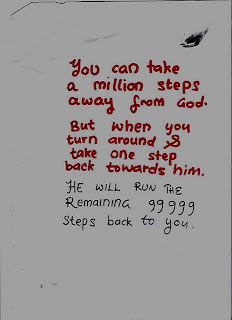 You can take
a million steps
away from God.
But when you
turn around &
take one step
back towards him.
HE WILL RUN THE
Remaining 99999
Steps back to you.